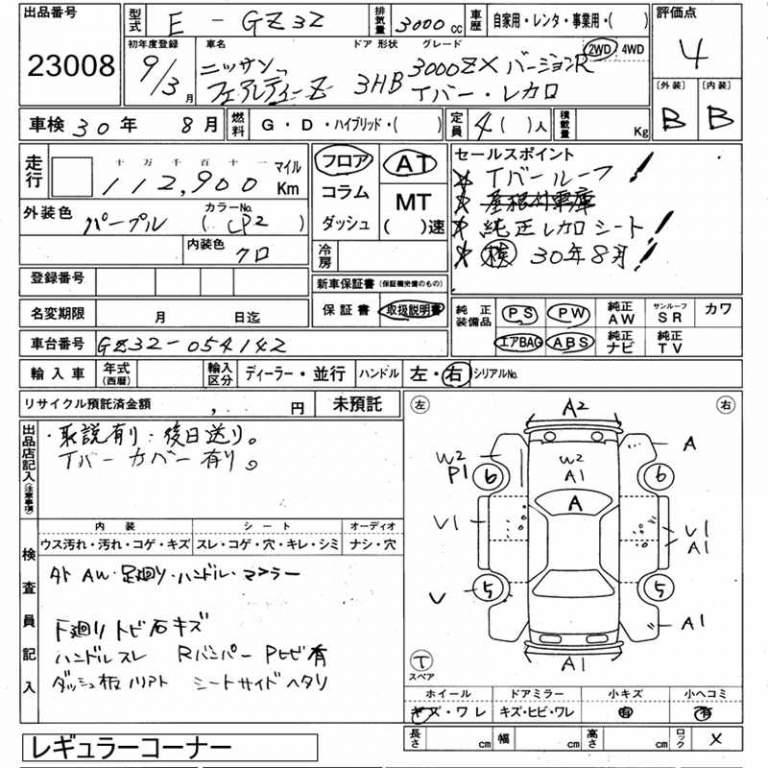 出品番号 型式 E - GZ32 排気量 3000 cc 車歴 自家用・レンタ・事業用・( ) 評価点
23008 初年度登録 車名 ドア 形状 グレード 2WD 4WD 4
9/3月 ニッサン 3HB 3000ZX バージョンR
フェアレディーZ Tバー・レカロ
[外装] [内装]
B B
車検 30年 8月 燃料 G・D・ハイブリッド・( ) 定員 4( )人 積載量 Kg
走行 十万千百十一 マイル
112,900 Km
フロア AT
コラム MT
ダッシュ ( )速
セールスポイント
Tバールーフ
屋根付車庫
純正レカロシート
検 30年8月
外装色 パープル カラーNo. (LP2)
内装色 クロ
冷房
登録番号
新車保証書 (保証継承書のもの)
名変期限 月 日迄 保証書 取扱説明書
純正装備品 PS PW 純正AW サンルーフSR カワ
エアBAG ABS 純正ナビ 純正TV
車台番号 GZ32-054142
輸入車 年式(西暦) 輸入区分 ディーラー・並行 ハンドル 左・右 シリアルNo.
リサイクル預託済金額 , 円 未預託
出品店記入(注意事項)
・取説有り・後日送り。
Tバーカバー有り。
内装 シート オーディオ
ウス汚れ・汚れ・コゲ・キズ スレ・コゲ・穴・キレ・シミ ナシ・穴
検査員記入
外 AW・足廻り・ハンドル・マフラー
下廻りトビ石キズ
ハンドルスレ Rバンパー Pヒビ有
ダッシュ板ハリアト シートサイドヘタリ
左 A2 右
W2 P1 6 W2 A1 6 A
A
V1 V1 A1
V 5 5 A1
A1
T
スペア
ホイール ドアミラー 小キズ 小ヘコミ
キズ・ワレ キズ・ヒビ・ワレ 有 有
長さ cm 幅 cm 高さ cm ロック ×
レギュラーコーナー